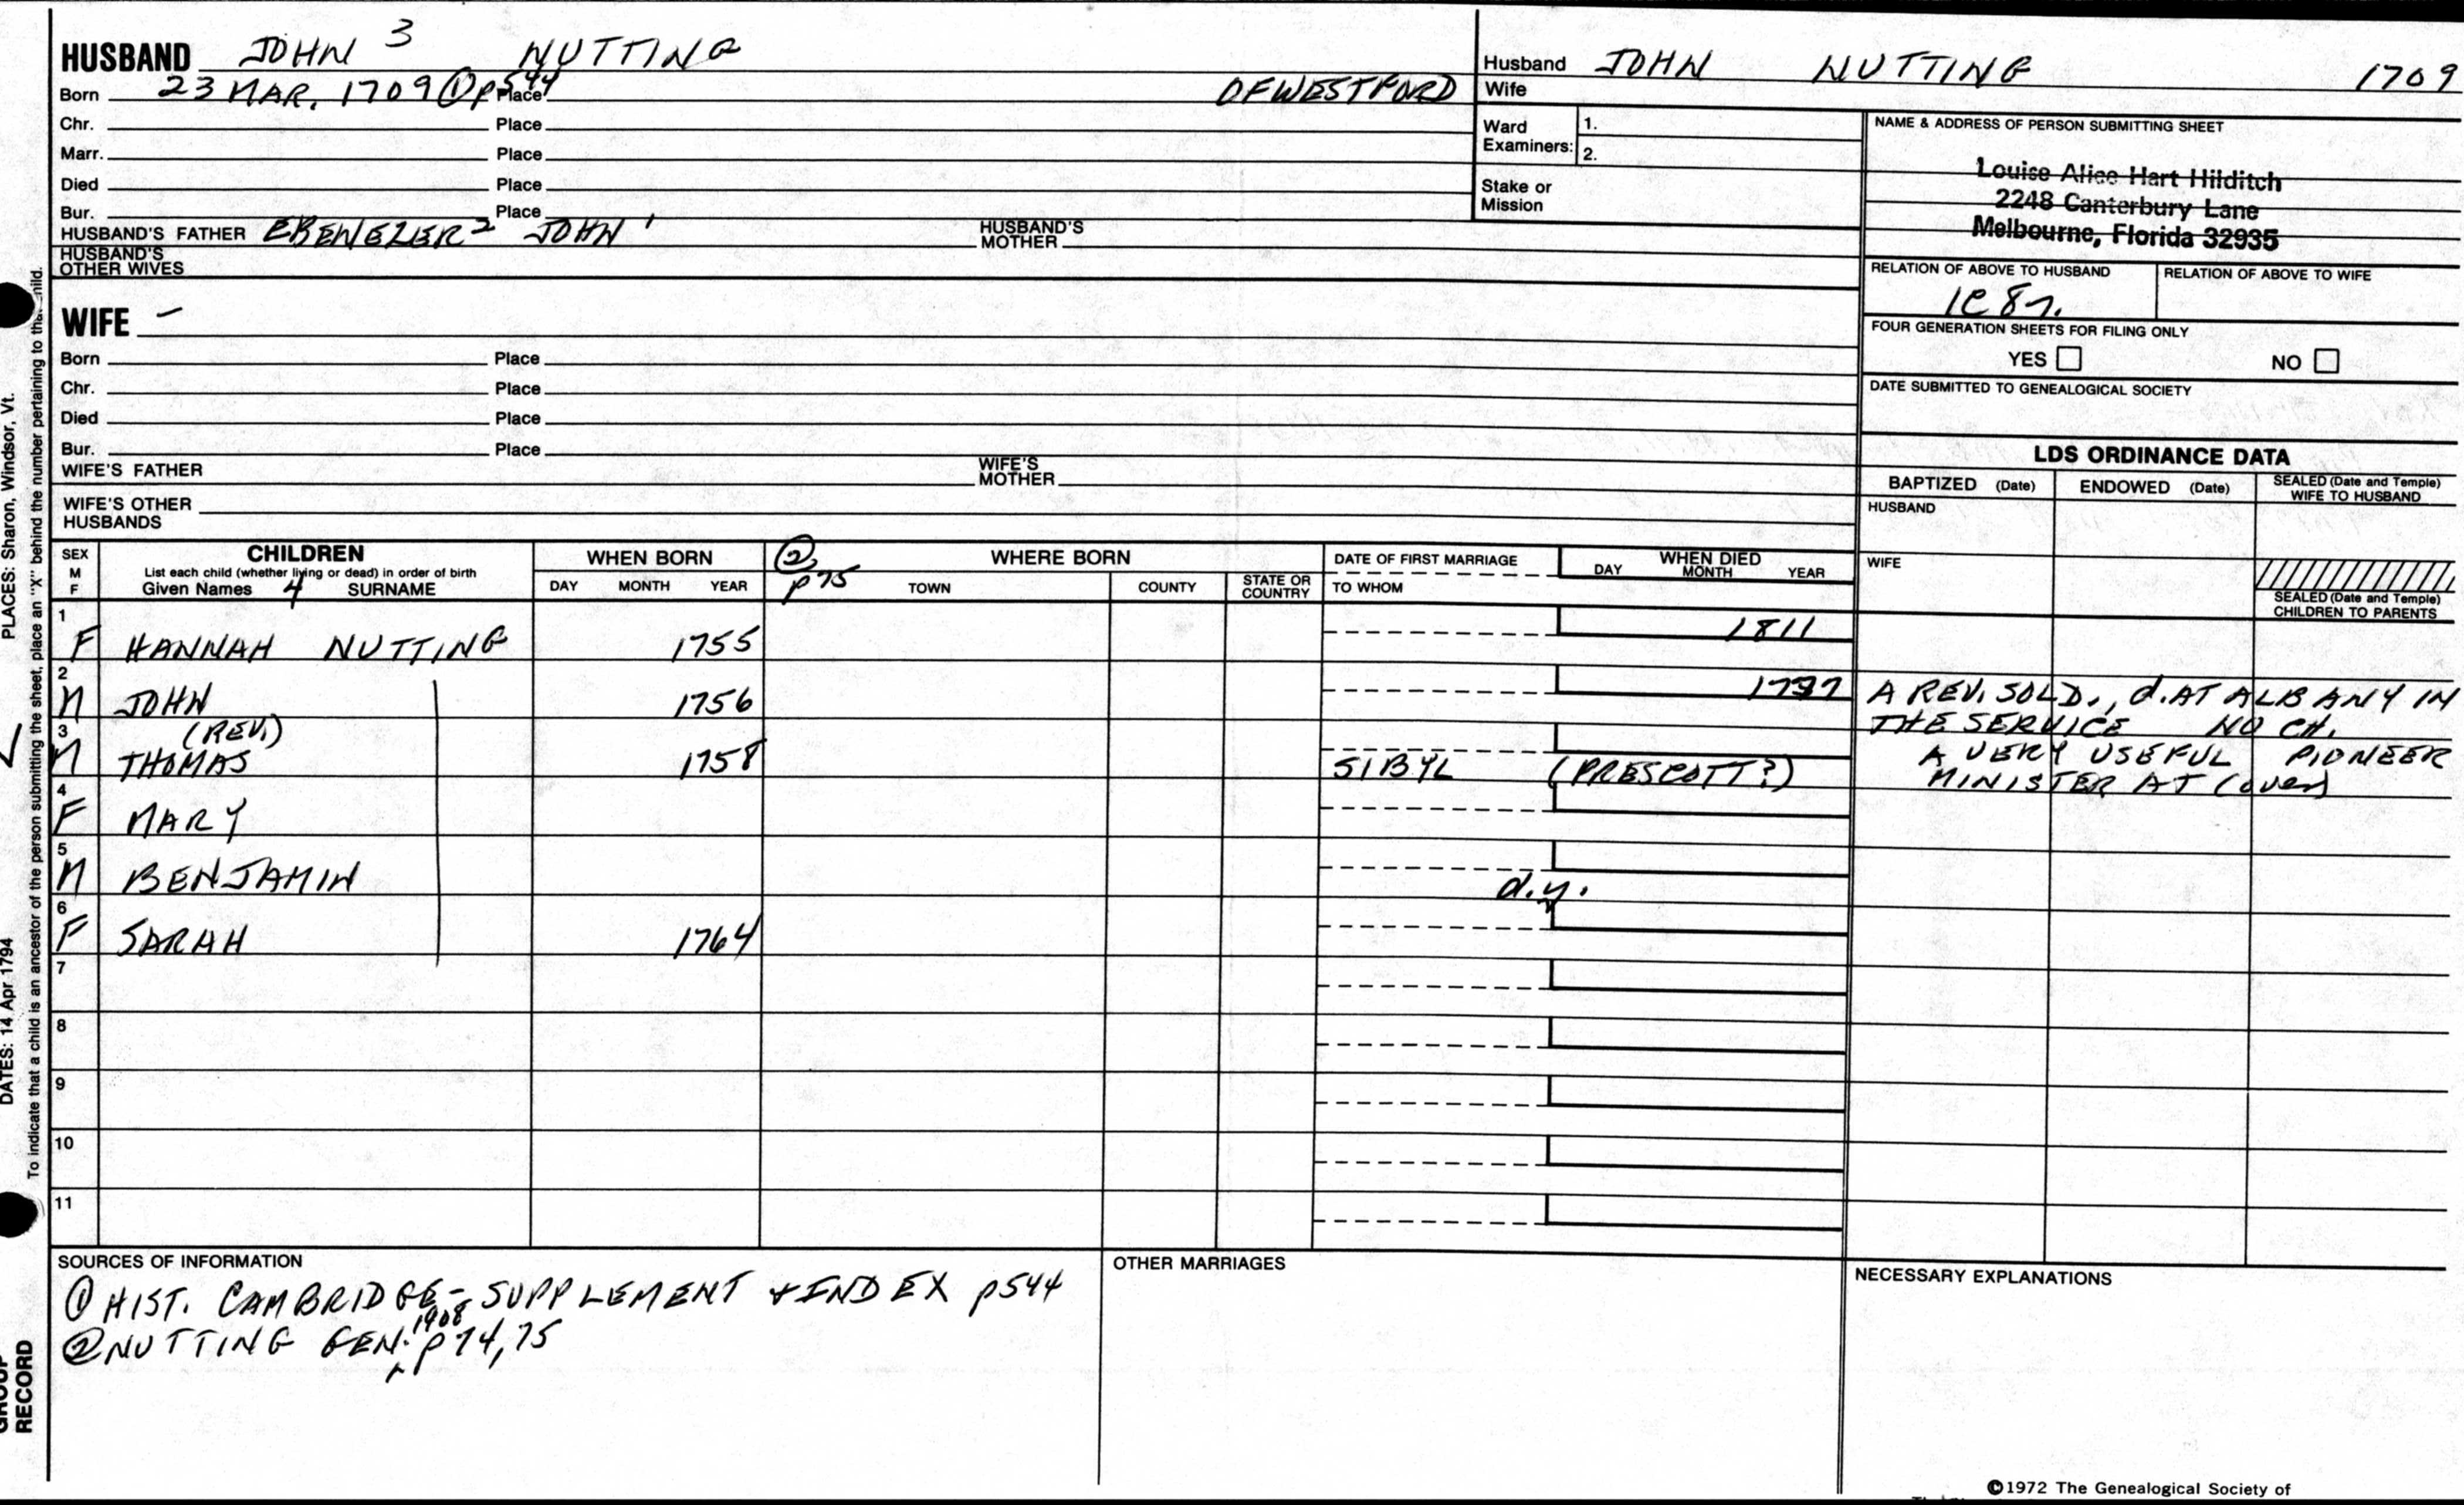 HUSBAND JOHN 3 NUTTING
Born 23 MAR. 1709 ① p544 Place OF WESTFORD
Chr. Place
Marr. Place
Died Place
Bur. Place
HUSBAND'S FATHER EBENEZER 2 JOHN 1 HUSBAND'S MOTHER
HUSBAND'S OTHER WIVES
Husband JOHN NUTTING 1709
Wife
Ward Examiners: 1.
2.
Stake or Mission
NAME & ADDRESS OF PERSON SUBMITTING SHEET
Louise Alice Hart Hilditch
2248 Canterbury Lane
Melbourne, Florida 32935
RELATION OF ABOVE TO HUSBAND RELATION OF ABOVE TO WIFE
1C 8r.
FOUR GENERATION SHEETS FOR FILING ONLY
YES NO
DATE SUBMITTED TO GENEALOGICAL SOCIETY
WIFE –
Born Place
Chr. Place
Died Place
Bur. Place
WIFE'S FATHER WIFE'S MOTHER
WIFE'S OTHER HUSBANDS
LDS ORDINANCE DATA
BAPTIZED (Date) ENDOWED (Date) SEALED (Date and Temple) WIFE TO HUSBAND
HUSBAND
WIFE
SEALED (Date and Temple) CHILDREN TO PARENTS
SEX M F
CHILDREN
List each child (whether living or dead) in order of birth
Given Names 4 SURNAME
WHEN BORN
DAY MONTH YEAR
② p75
WHERE BORN
TOWN COUNTY STATE OR COUNTRY
DATE OF FIRST MARRIAGE
TO WHOM
WHEN DIED
DAY MONTH YEAR
1 F HANNAH NUTTING 1755 1811
2 M JOHN 1756 A REV. SOLD., d. AT ALBANY IN
THE SERVICE NO CH.
3 M (REV.) THOMAS 1758 SIBYL (PRESCOTT?) A VERY USEFUL PIONEER
MINISTER AT (over)
4 F MARY
5 M BENJAMIN d.y.
6 F SARAH 1764
7
8
9
10
11
SOURCES OF INFORMATION
① HIST. CAMBRIDGE – SUPPLEMENT + INDEX p544
② NUTTING GEN. 1908 p74,75
OTHER MARRIAGES
NECESSARY EXPLANATIONS
©1972 The Genealogical Society of
PLACES: Sharon, Windsor, Vt.
DATES: 14 Apr 1794
To indicate that a child is an ancestor of the person submitting the sheet, place an "X" behind the number pertaining to that child.
GROUP RECORD